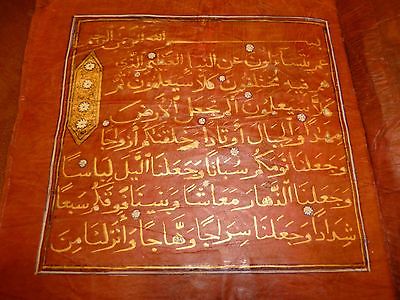 بسم الله الرحمن الرحيم
عم يتساءلون عن النبا العظيم الذي
هم فيه مختلفون كلا سيعلمون ثم
كلا سيعلمون ألم نجعل الأرض
مهدا والجبال أوتادا وخلقنكم أزواجا
وجعلنا نومكم سباتا وجعلنا الليل لباسا
وجعلنا النهار معاشا وبنينا فوقكم سبعا
شدادا وجعلنا سراجا وهاجا وأنزلنا من